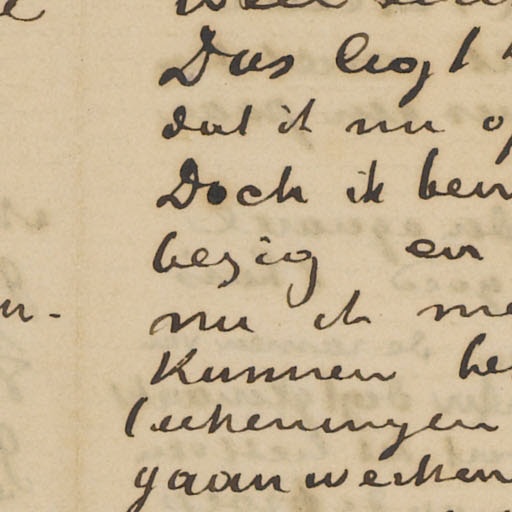 Das legt
dat ik nu op
Doch ik ben
bezig en
nu ik me
kunnen
teekeningen
gaan werken